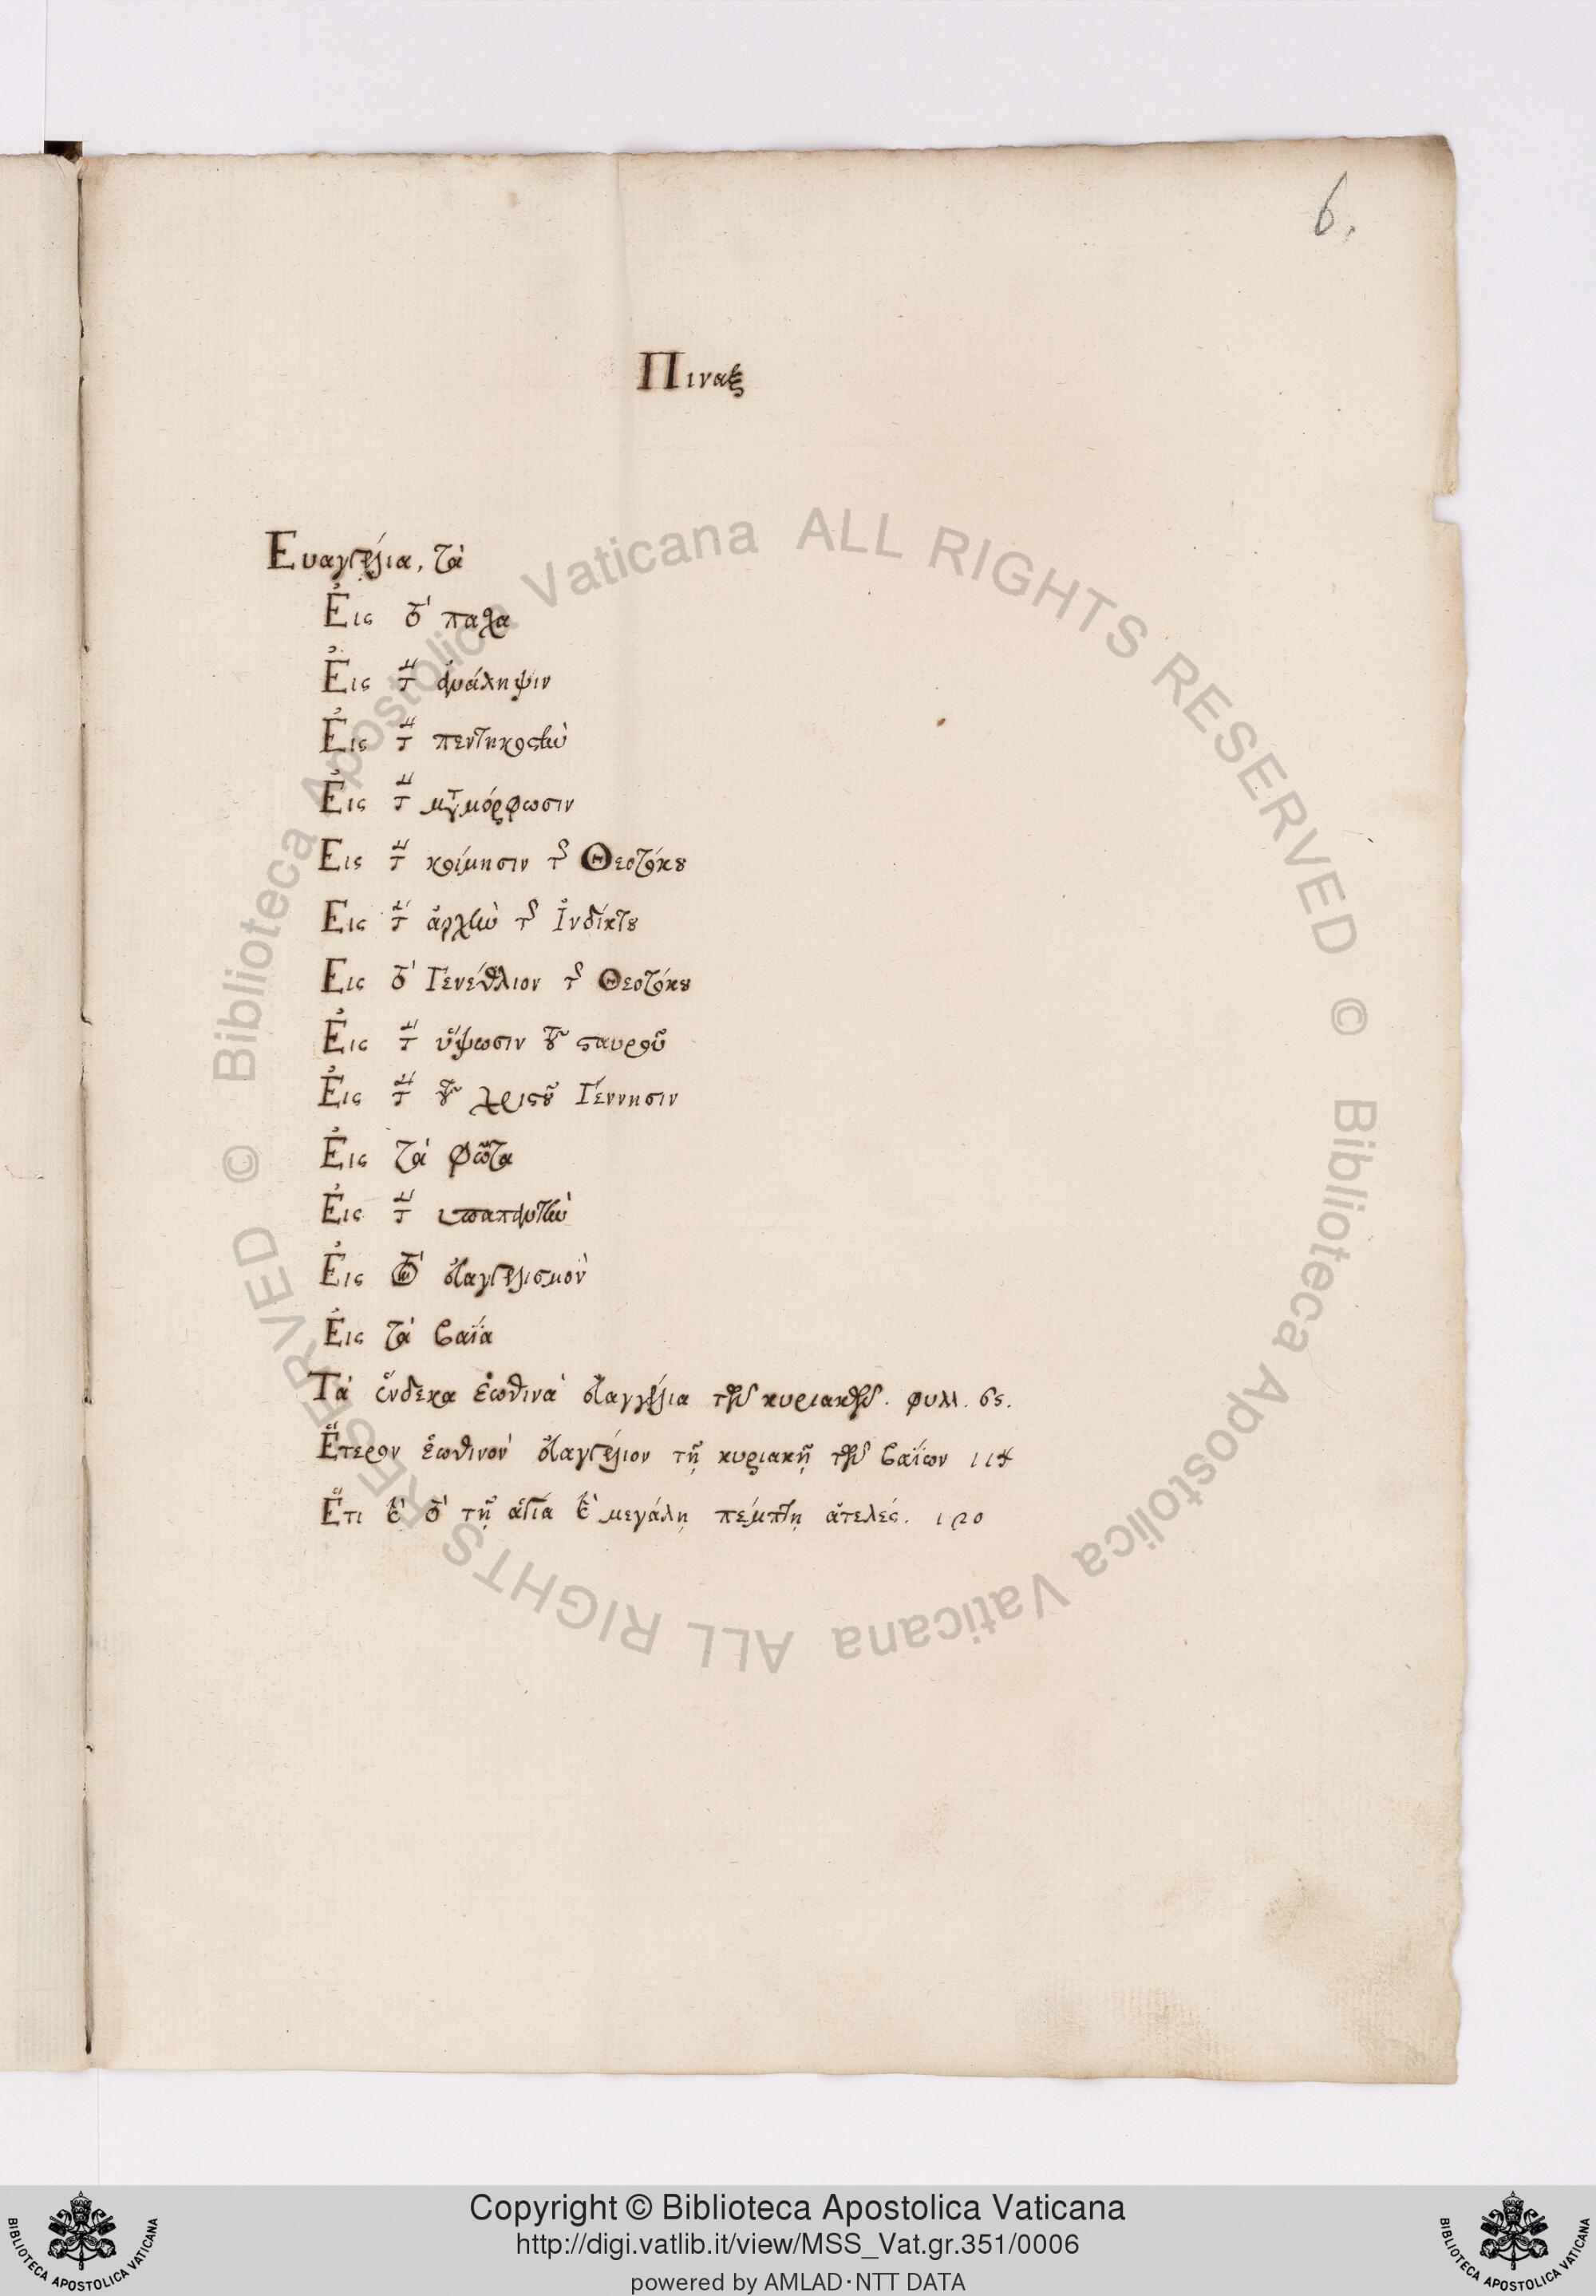 6.
Πιναξ
Ευαγγέλια, τὰ
Εἰς τὸ πασχα
Εἰς τὴν ἀνάληψιν
Εἰς τὴν πεντηκοστὴν
Εἰς τὴν μεταμόρφωσιν
Εις τὴν κοίμησιν τῆς Θεοτόκου
Εις τὴν ἀρχὴν τῆς Ἰνδίκτου
Εις τὸ Γενέθλιον τῆς Θεοτόκου
Εἰς τὴν ὕψωσιν τοῦ σταυροῦ
Εἰς τὴν τοῦ χριστοῦ Γέννησιν
Εἰς τὰ φῶτα
Εἰς τὴν υπαπαντὴν
Εἰς τὸν εὐαγγελισμὸν
Εἰς τὰ βαΐα
Τὰ ἕνδεκα ἑωθινὰ εὐαγγέλια τῶν κυριακῶν. φυλλ. 65.
Ἕτερον ἑωθινὸν εὐαγγέλιον τῇ κυριακῇ τῶν βαΐων 114
Ἔτι καὶ τὸ τῇ ἁγία καὶ μεγάλῃ πέμπτῃ ἀτελές. 120
© Biblioteca Apostolica Vaticana ALL RIGHTS RESERVED © Biblioteca Apostolica Vaticana ALL RIGHTS RESERVED
Copyright © Biblioteca Apostolica Vaticana
http://digi.vatlib.it/view/MSS_Vat.gr.351/0006
powered by AMLAD·NTT DATA
BIBLIOTECA APOSTOLICA VATICANA
BIBLIOTECA APOSTOLICA VATICANA